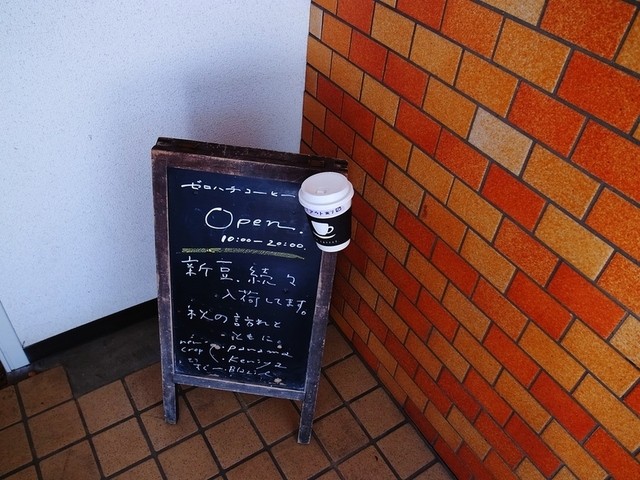 ゼロハチコーヒー
Open.
10:00–20:00.
新豆、続々
入荷してます。
秋の訪れと
ともに。
new crop
・Panama
・Kenya